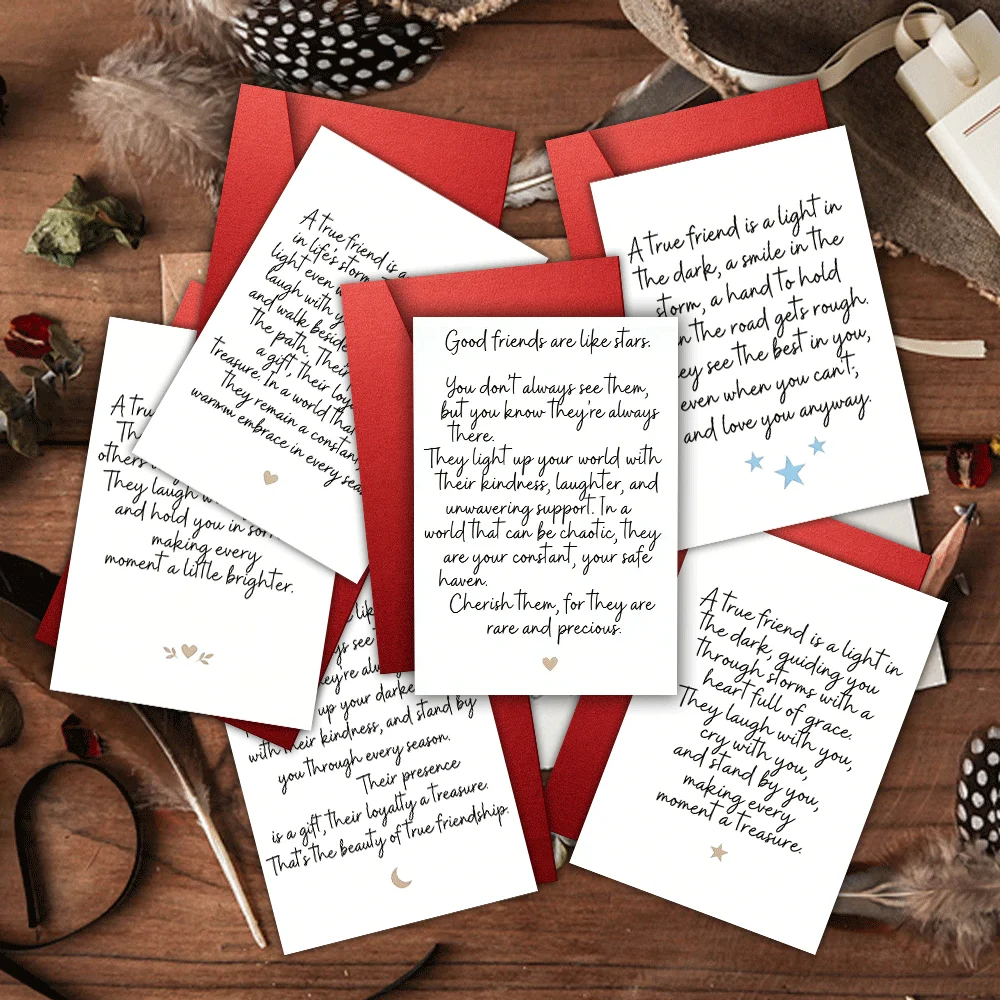 A true friend is a
in life's storm
light even
laugh with
and walk beside
the path. Their
a gift, their
treasure. In a world that
they remain a constant,
warm embrace in every
A true friend is a light in
the dark, a smile in the
storm, a hand to hold
the road gets rough.
see the best in you,
even when you can't,
and love you anyway.
A
others
They laugh
and hold you in
making every
moment a little brighter.
Good friends are like stars.
You don't always see them,
but you know they're always
there.
They light up your world with
their kindness, laughter, and
unwavering support. In a
world that can be chaotic, they
are your constant, your safe
haven.
Cherish them, for they are
rare and precious.
see
up your
with their kindness, and stand by
you through every season.
Their presence
is a gift, their loyalty a treasure.
That's the beauty of true friendship.
A true friend is a light in
the dark, guiding you
through storms with a
heart full of grace.
They laugh with you,
cry with you,
and stand by you,
making every
moment a treasure.